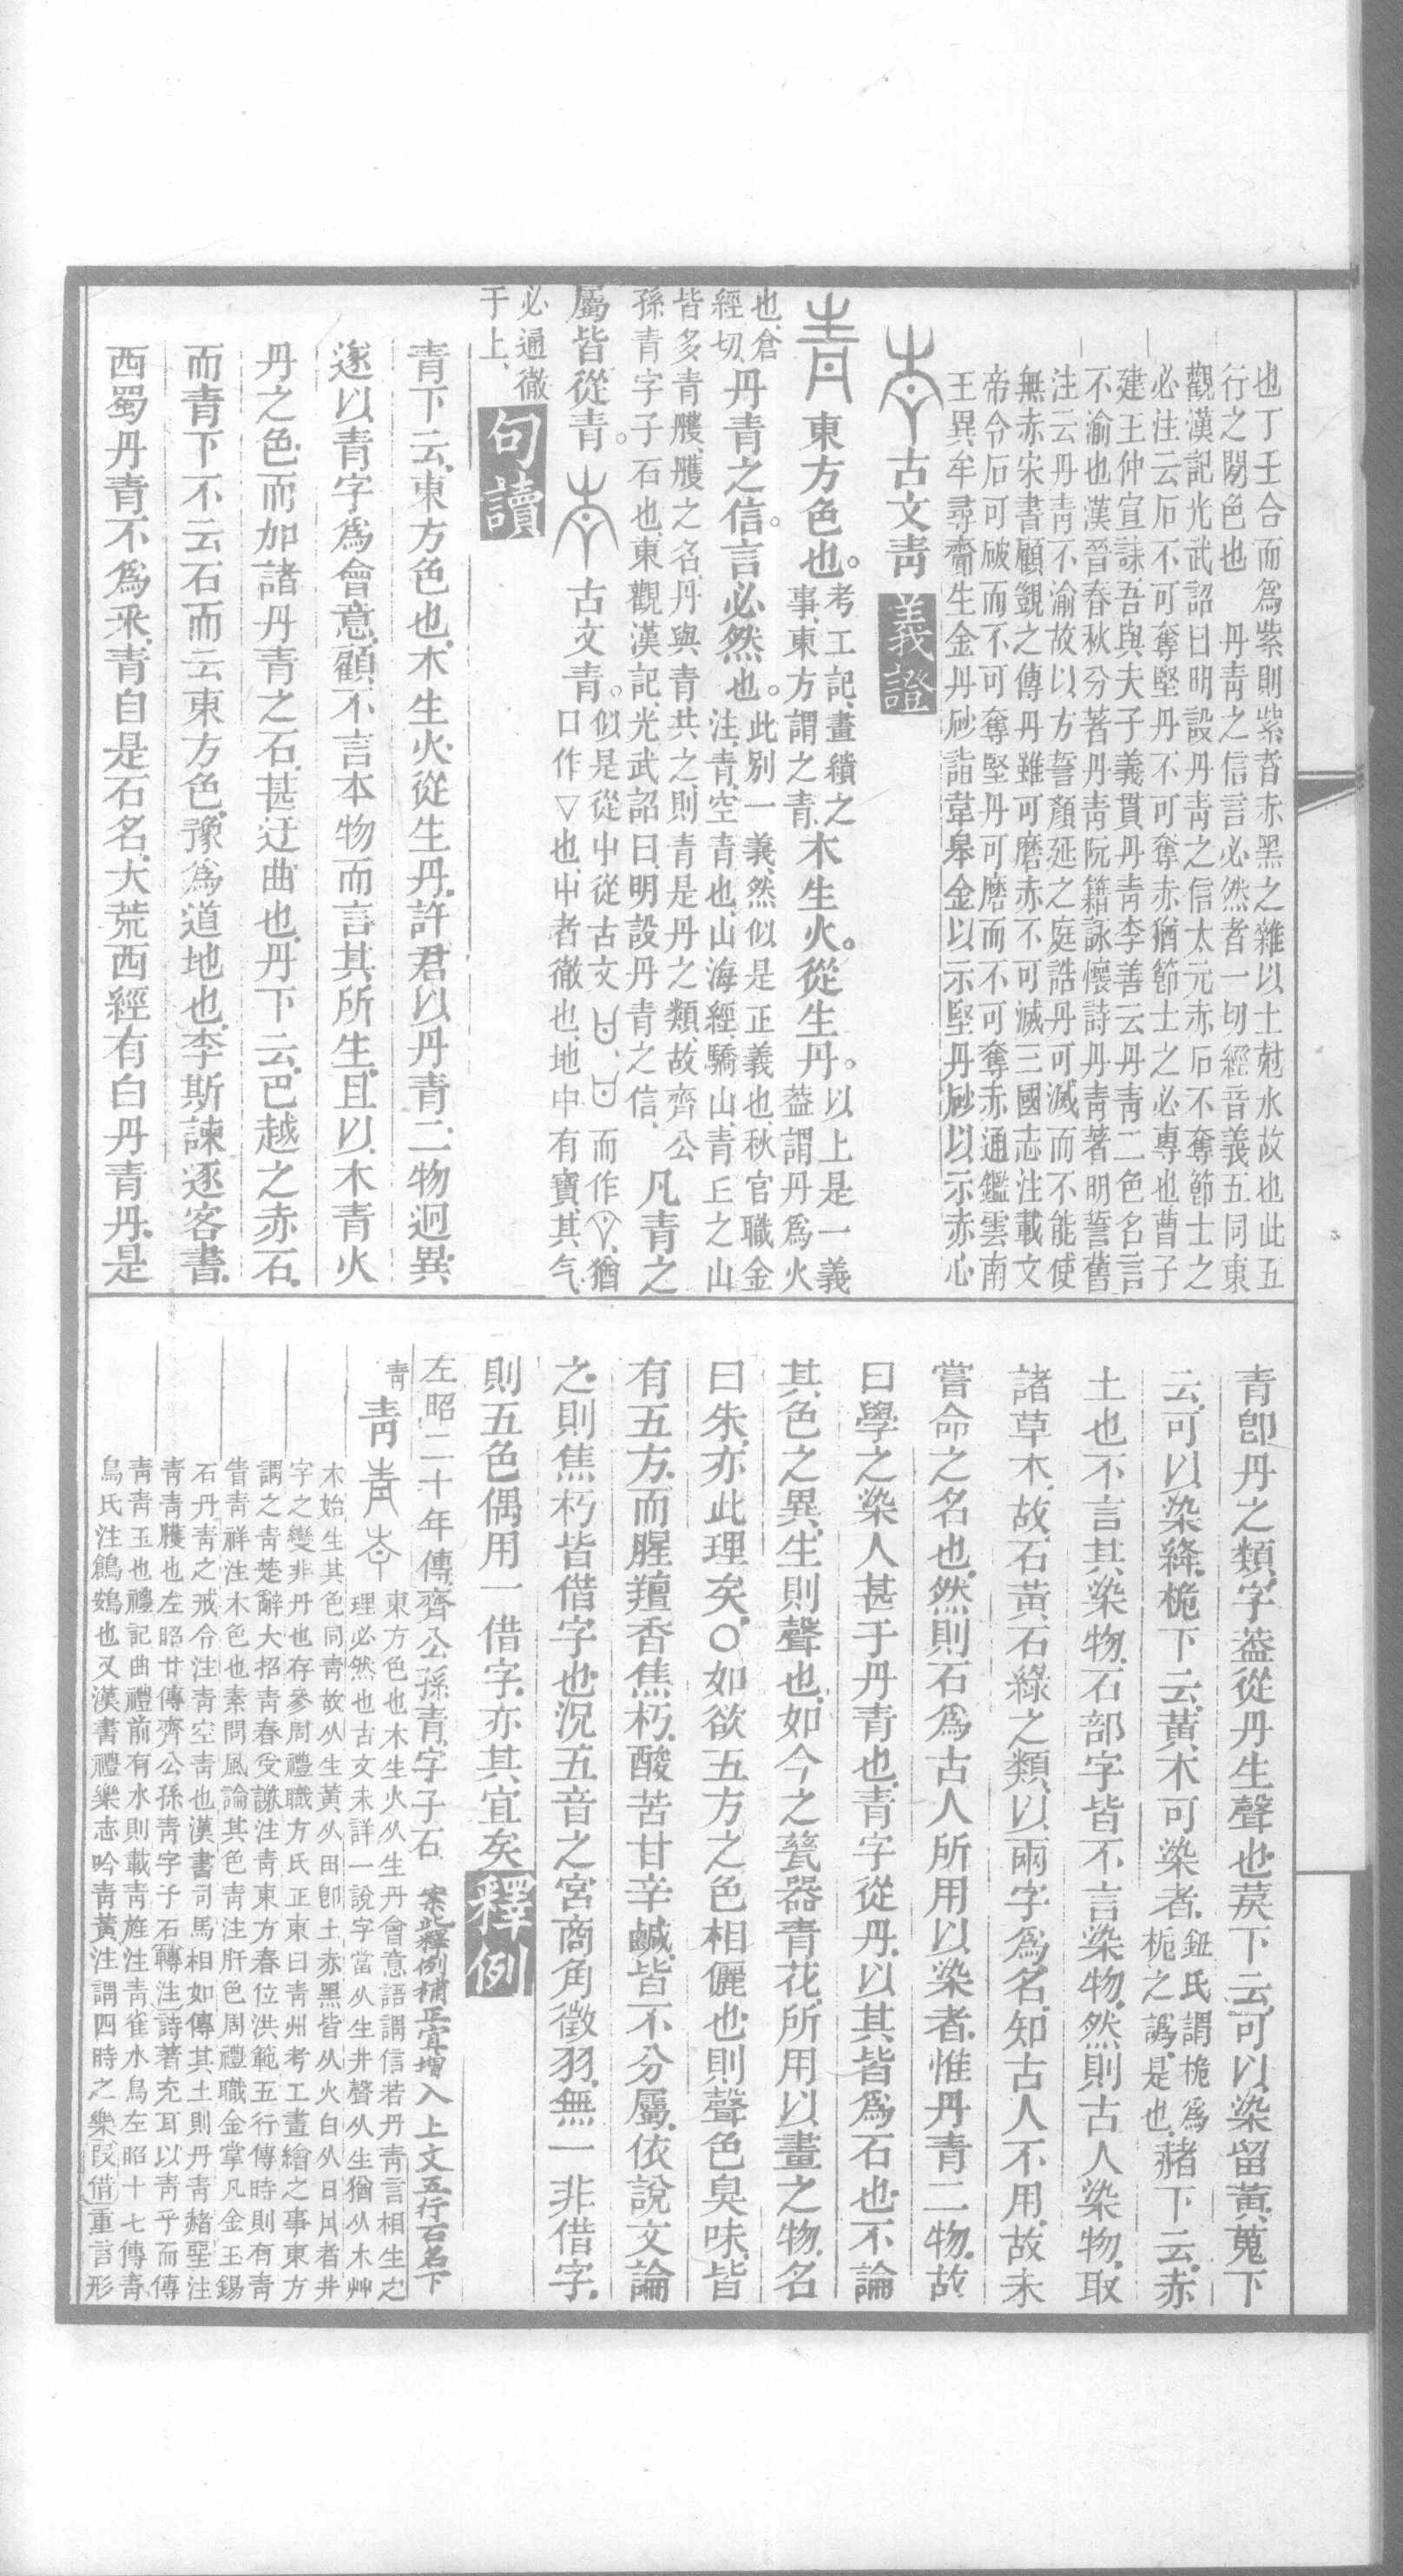 也丁壬合而爲紫則紫者赤黑之雜以土尅水故也此五
行之閒色也　丹靑之信言必然者一切經音義五同東
觀漢記光武詔曰明設丹靑之信太元赤石不奪節士之
必注云石不可奪堅丹不可奪赤猶節士之必專也曹子
建王仲宣誄吾與夫子義貫丹靑李善云丹靑二色名言
不渝也漢晉春秋分著丹靑阮籍詠懷詩丹靑著明誓舊
注云丹靑不渝故以方誓顏延之庭誥丹可滅而不能使
無赤宋書顧覬之傳丹雖可磨赤不可滅三國志注載文
帝令石可破而不可奪堅丹可磨而不可奪赤通鑑雲南
王異牟尋齎生金丹砂詣韋皋金以示堅丹砂以示赤心
古文靑 義證
東方色也。考工記、畫繢之事、東方謂之靑、木生火。從生丹。以上是一義蓋謂丹爲火
也、倉經切、丹青之信。言必然也。此別一義、然似是正義也、秋官職金注、青、空青也、山海經、驕山、青丘之山
皆多青雘、雘之名、丹與青共之、則青是丹之類、故齊公孫青字子石也、東觀漢記、光武詔曰、明設丹青之信、凡青之
屬皆從青。古文青。似是從屮從古文、而作、猶口作▽也、屮者徹也、地中有寶、其气
必通徹于上、 句讀
青下云、東方色也、木生火、從生丹、許君以丹青二物迥異、
遂以青字爲會意、顧不言本物而言其所生、且以木青火
丹之色、而加諸丹青之石、甚迂曲也、丹下云、巴越之赤石、
而青下不云石而云東方色、豫爲道地也、李斯諫逐客書、
西蜀丹青不爲采、青自是石名、大荒西經有白丹青丹、是
青卽丹之類、字蓋從丹生聲也、莀下云、可以染留黃、蒐下
云、可以染絳、梔下云、黃木可染者、鈕氏謂桅爲梔之譌、是也、赭下云、赤
土也、不言其染物、石部字皆不言染物、然則古人染物、取
諸草木、故石黃石綠之類、以兩字爲名、知古人不用、故未
嘗命之名也、然則石爲古人所用以染者、惟丹青二物、故
曰學之染人甚于丹青也、青字從丹、以其皆爲石也、不論
其色之異、生則聲也、如今之瓷器青花、所用以畫之物、名
曰朱、亦此理矣、〇如欲五方之色相儷也、則聲色臭味、皆
有五方、而腥羶香焦朽、酸苦甘辛鹹、皆不分屬、依說文論
之、則焦朽皆借字也、況五音之宮商角徵羽、無一非借字、
則五色偶用一借字、亦其宜矣 釋例
左昭二十年傳、齊公孫青、字子石 案此釋例補正宜增入上文五行石名下
靑 靑 東方色也木生火从生丹會意語謂信若丹靑言相生之
理必然也古文未詳一說字當从生井聲从生猶从木艸
木始生其色同靑故从生黃从田卽土赤黑皆从火白从日月者井
字之變非丹也存參周禮職方氏正東曰靑州考工畫繪之事東方
謂之靑楚辭大招靑春受謝注靑東方春位洪範五行傳時則有靑
眚靑祥注木色也素問風論其色靑注肝色周禮職金掌凡金玉錫
石丹靑之戒令注靑空靑也漢書司馬相如傳其土則丹靑赭堊注
靑靑雘也左昭廿傳齊公孫靑字子石轉注詩著充耳以靑乎而傳
靑靑玉也禮記曲禮前有水則載靑旌注靑雀水鳥左昭十七傳靑
鳥氏注鶬鴳也又漢書禮樂志吟靑黃注謂四時之樂叚借重言形